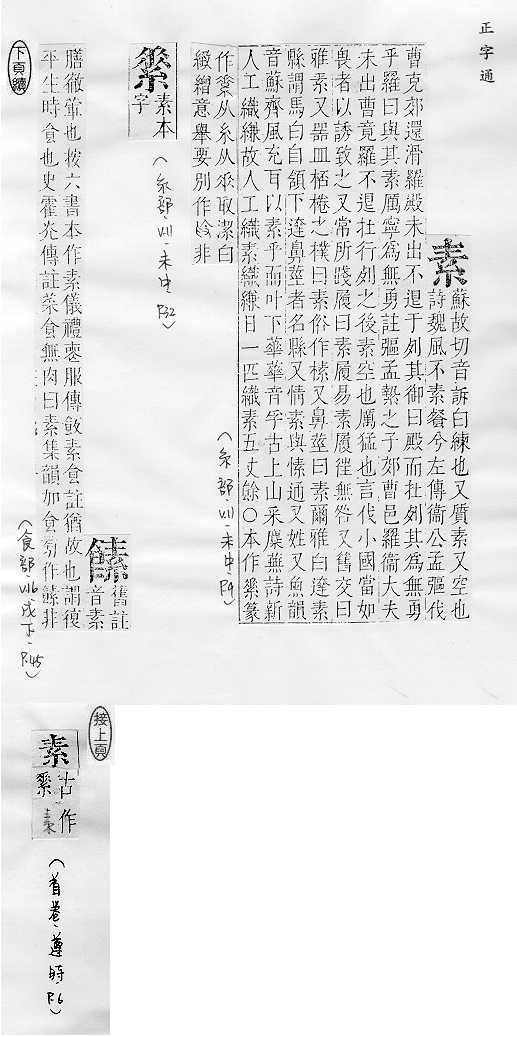 正字通
素
蘇故切音訴白練也又質素又空也
詩魏風不素餐兮左傳衞公孟彄伐
曹克郊還滑羅殿未出不退于列其御曰殿而在列其為無勇
乎羅曰與其素厲寧為無勇註彄孟縶之子郊曹邑羅衞大夫
未出曹竟羅不退在行列之後素空也厲猛也言伐小國當如
畏者以誘致之又常所踐履曰素履易素履徃無咎又舊交曰
雅素又器皿桮棬之樸曰素俗作榡又鼻莖曰素爾雅白達素
縣謂馬白自額下達鼻莖者名縣又情素與愫通又姓又魚韻
音蘇齊風充耳以素乎而叶下華華音乎古上山采蘼蕪詩新
人工織縑故人工織素織縑日一匹織素五丈餘○本作𦃃篆
作𦃃从糸从𠂹取潔白
緻繒意舉要別作 非
(糸部.VII-未中P.9)
𦃃
素本
字
(糸部.VII-未中P.32)
䭘
舊註
音素
膳徹葷也按六書本作素儀禮喪服傳飯素食註猶故也謂復
平生時食也史霍光傳註菜食無肉曰素集韻加食旁作䭘非
(食部.VII6戌下-P.45)
下頁續
接上頁
素
古作
𦃃
(首卷.遵時.P.6)